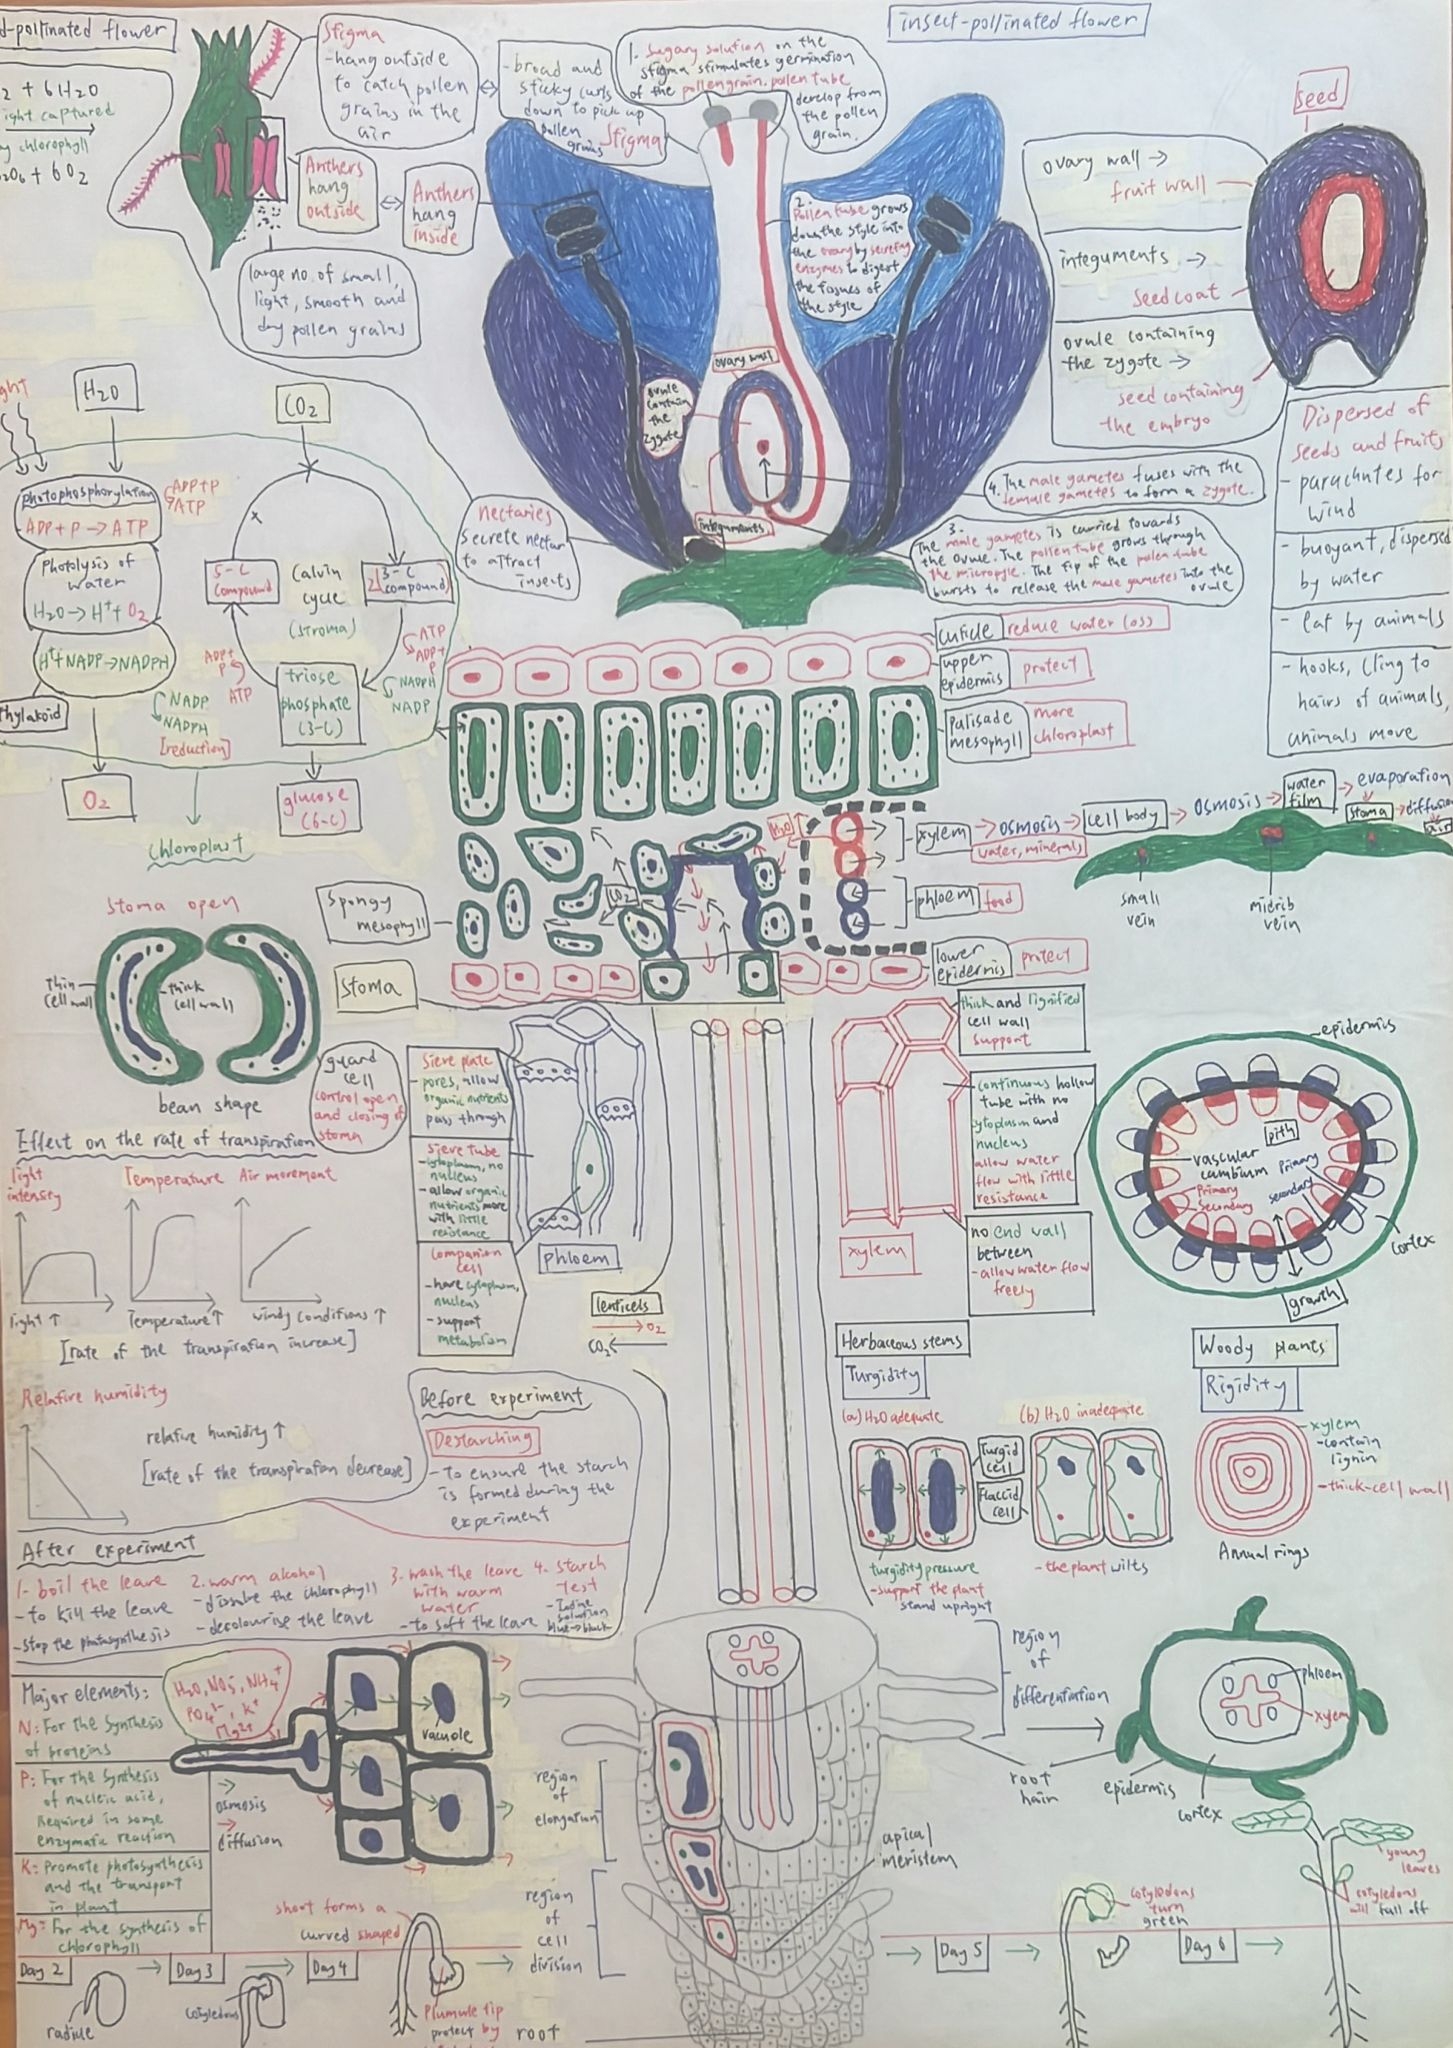 d-pollinated flower
2 + 6H2O
ight captured
y chlorophyll
2O6 + 6O2
Stigma
- hang outside
to catch pollen
grains in the
air
- broad and
sticky curls
down to pick up
pollen
grains
Stigma
1. Sugary solution on the
stigma stimulates germination
of the pollen grain. pollen tube
develop from
the pollen
grain.
insect-pollinated flower
Anthers
hang
outside
Anthers
hang
inside
large no. of small,
light, smooth and
dry pollen grains
2.
Pollen tube grows
down the style into
the ovary by secreting
enzymes to digest
the tissues of
the style
ovary wall
ovule
contain
the
zygote
integuments
nectaries
secrete nectar
to attract
insects
4. The male gametes fuses with the
female gametes to form a zygote.
3.
The male gametes is carried towards
the ovule. The pollen tube grows through
the micropyle. The tip of the pollen tube
bursts to release the male gametes into the
ovule
seed
ovary wall →
fruit wall
integuments →
seed coat
ovule containing
the zygote →
seed containing
the embryo
Dispersed of
seeds and fruits
- parachutes for
wind
- buoyant, dispersed
by water
- eat by animals
- hooks, cling to
hairs of animals,
animals move
ght
H2O
CO2
Photophosphorylation
ADP + P → ATP
ADP+P
ATP
Photolysis of
water
H2O → H+ + O2
H+ + NADP → NADPH
thylakoid
NADP
NADPH
[reduction]
O2
5-C
compound
Calvin
cycle
(stroma)
2[3-C
compound]
ATP
ADP+
P
NADPH
NADP
ADP+
P
ATP
triose
phosphate
(3-C)
glucose
(6-C)
chloroplast
cuticle
reduce water loss
upper
epidermis
protect
palisade
mesophyll
more
chloroplast
H2O
CO2
xylem → osmosis → cell body → osmosis → water film → evaporation
water, minerals
stoma → diffusion
air
phloem
food
small
vein
midrib
vein
Spongy
mesophyll
Stoma
lower
epidermis
protect
Stoma open
thin
cell wall
thick
cell wall
bean shape
guard
cell
control open
and closing of
stoma
Sieve plate
- pores, allow
organic nutrients
pass through
sieve tube
- cytoplasm, no
nucleus
- allow organic
nutrients move
with little
resistance
companion
cell
- have cytoplasm,
nucleus
- support
metabolism
phloem
thick and lignified
cell wall
support
continuous hollow
tube with no
cytoplasm and
nucleus
allow water
flow with little
resistance
no end wall
between
- allow water flow
freely
xylem
epidermis
pith
vascular
cambium
Primary
Secondary
Primary
secondary
cortex
growth
Effect on the rate of transpiration
light
intensity
Temperature
Air movement
light ↑
Temperature ↑
windy conditions ↑
[rate of the transpiration increase]
Relative humidity
relative humidity ↑
[rate of the transpiration decrease]
lenticels
→ O2
CO2 ←
Before experiment
Destarching
- To ensure the starch
is formed during the
experiment
After experiment
1- boil the leave
- to kill the leave
- stop the photosynthesis
2. warm alcohol
- dissolve the chlorophyll
- decolourise the leave
3. wash the leave
with warm
water
- to soft the leave
4. starch
test
- Iodine
solution
blue → black
Herbaceous stems
Turgidity
(a) H2O adequate
(b) H2O inadequate
Turgid
cell
Flaccid
cell
turgidity pressure
- support the plant
stand upright
- the plant wilts
Woody plants
Rigidity
xylem
- contain
lignin
- thick-cell wall
Annual rings
Major elements:
N: For the synthesis
of proteins
P: For the synthesis
of nucleic acid,
Required in some
enzymatic reaction
K: Promote photosynthesis
and the transport
in plant
Mg: For the synthesis of
chlorophyll
H2O, NO3-, NH4+
PO4 3-, K+
Mg2+
vacuole
→ osmosis
→ diffusion
region
of
differentiation
region
of
elongation
region
of
cell
division
apical
meristem
root
hair
epidermis
cortex
phloem
xylem
root
Day 2
radicle
Day 3
cotyledons
Day 4
shoot forms a
curved shaped
Plumule tip
protect by
Day 5
cotyledons
turn
green
Day 6
young
leaves
cotyledons
will fall off